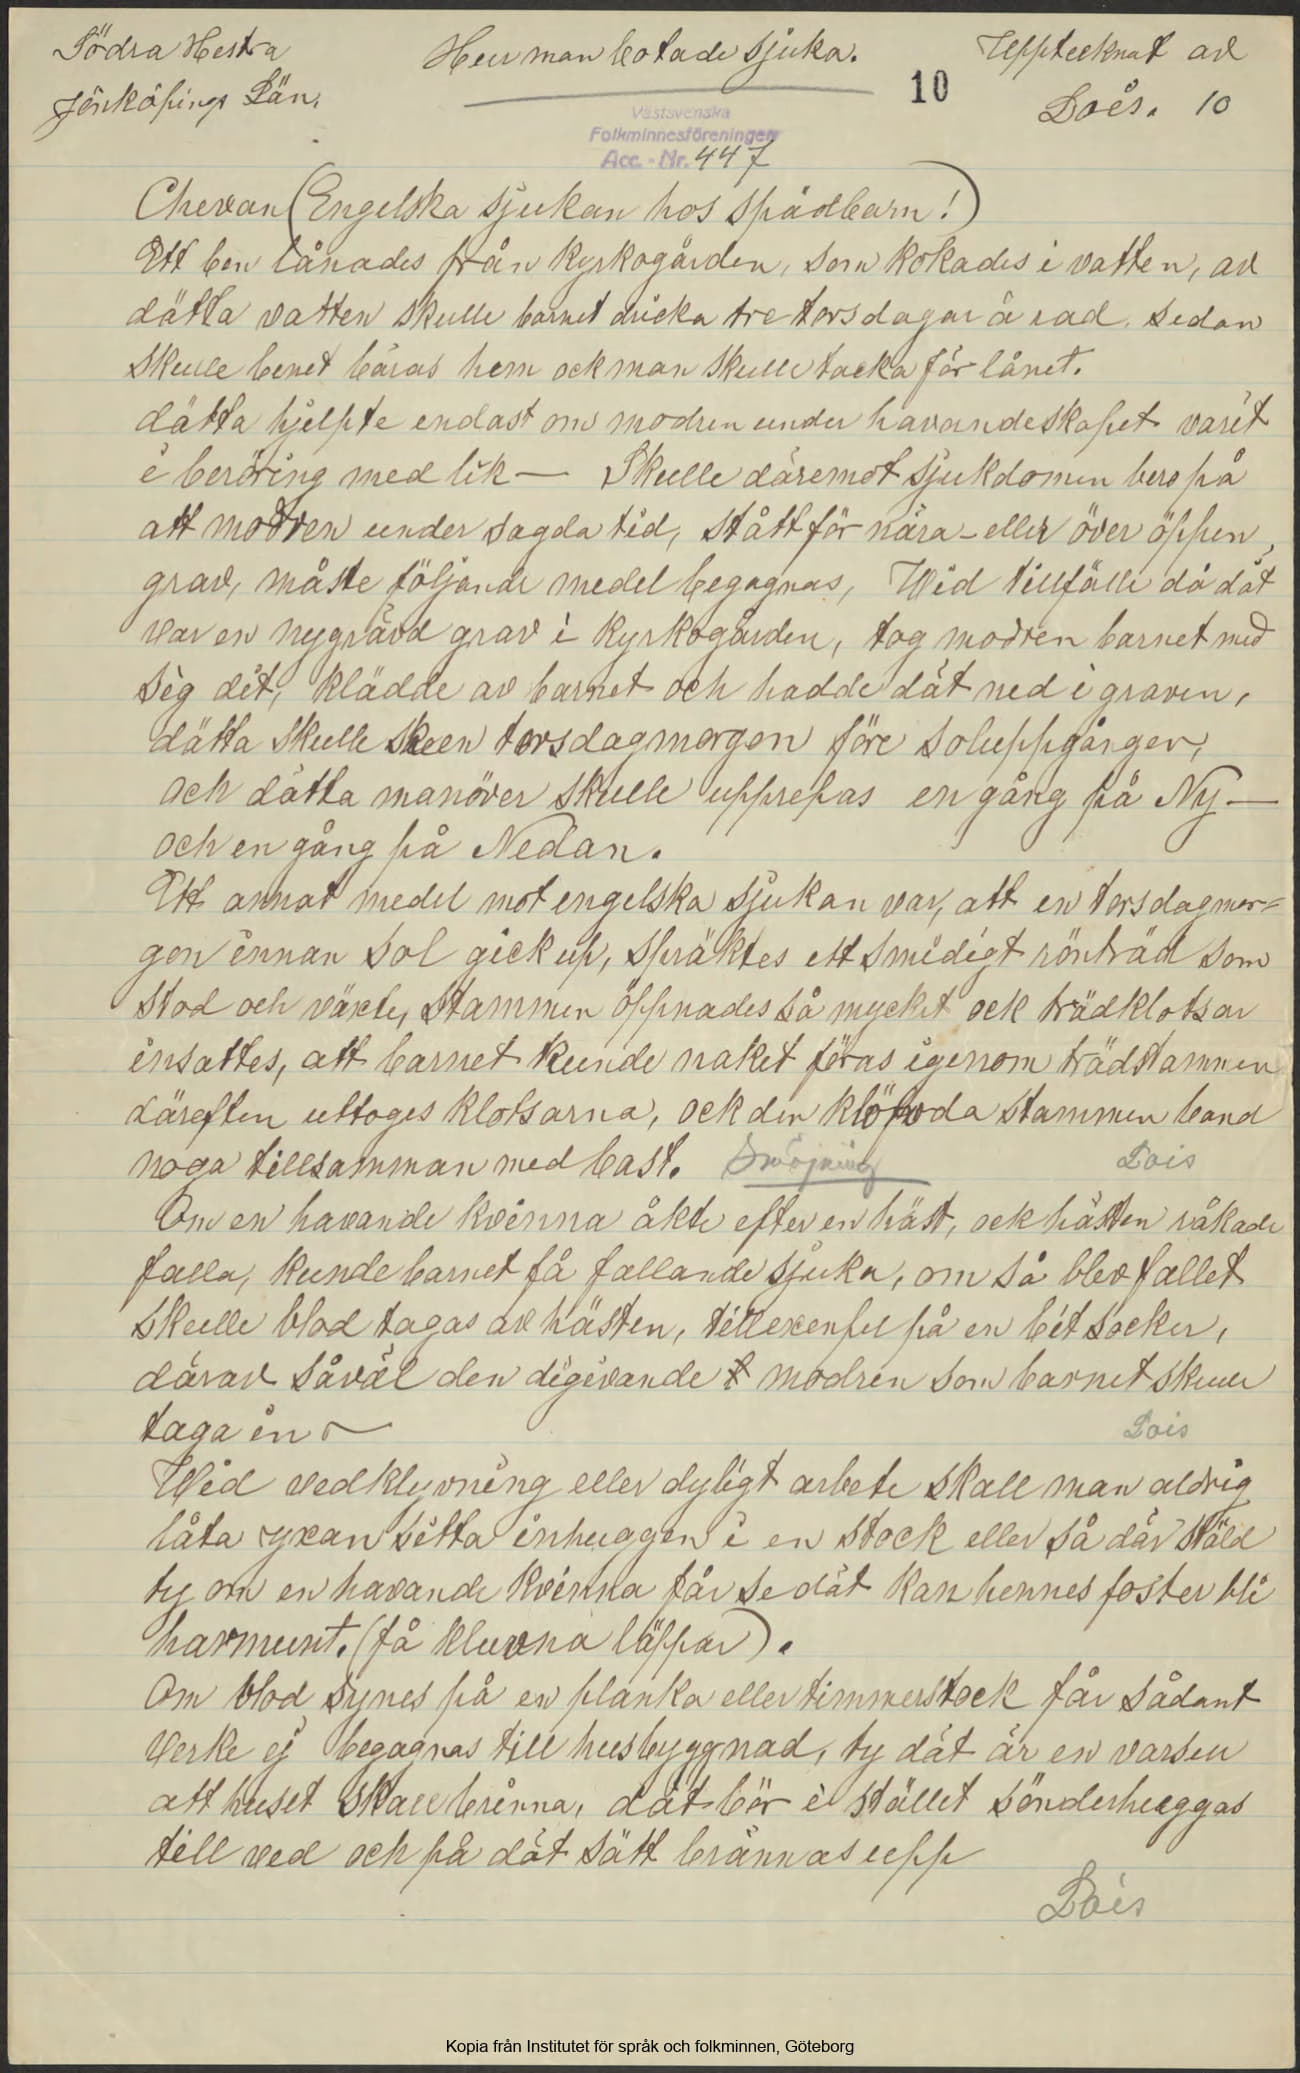 Södra Hestra
Jönköpings Län.
Hur man botade sjuka.
Upptecknat av
Dois. 10
10
Västsvenska
Folkminnesföreningen
Acc.-Nr. 447
Chevan (Engelska sjukan hos spädbarn!)
Ett ben lånades från kyrkogården, som kokades i vatten, av
dätta vatten skulle barnet dricka tre torsdagar å rad. sedan
skulle benet bäras hem ock man skulle tacka för lånet.
dätta hjelpte endast om modren under havandeskapet varit
i beröring med lik — Skulle däremot sjukdomen bero på
att modren under sagda tid, stått för nära - eller över öppen
grav, måste följande medel begagnas, Wid tillfälle då dät
var en nygrävd grav i kyrkogården, tog modren barnet med
sig dit, klädde av barnet och hadde dät ned i graven,
dätta skulle ske en torsdagmorgon före soluppgången,
och dätta manöver skulle upprepas en gång på Ny —
och en gång på Nedan.
Ett annat medel mot engelska sjukan var, att en torsdagmor=
gon innan sol gick up, spräktes ett smidigt rönträd som
stod och växte, stammen öppnades så mycket ock trädklotsar
insattes, att barnet kunde naket föras igenom trädstammen
därefter uttoges klotsarna, ock den klöfvda stammen band
noga tillsamman med bast. Smöjning Dois
Om en havande kvinna åkte efter en häst, ock hästen råkade
falla, kunde barnet få fallandesjuka, om så blev fallet
skulle blod tagas av hästen, till exenpel på en bit socker,
därav såväl den digivande modren som barnet skulle
taga in — Dois
Wid vedklyvning eller dyligt arbete skall man aldrig
låta yxan sitta inhuggen i en stock eller så där stäld
ty om en havande kvinna får se dät kan hennes foster bli
harmunt. (få kluvna läppar).
Om blod synes på en planka eller timmerstock får sådant
verke ej begagnas till husbyggnad, ty dät är en varsen
att huset skall brinna, dät bör i stället sönderhuggas
till ved och på dät sätt brännas upp
Dois
Kopia från Institutet för språk och folkminnen, Göteborg